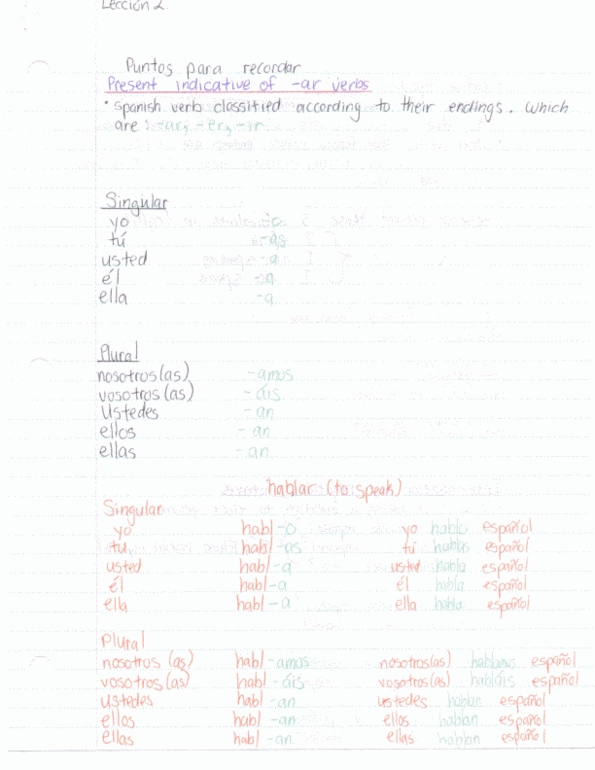 Lección 2
Puntos para recordar
Present indicative of -ar verbs
• Spanish verb classified according to their endings. Which
are: -ar, -er, -ir.
Singular
yo -o
tú -as
usted -a
él -a
ella -a
Plural
nosotros(as) -amos
vosotros(as) -áis
Ustedes -an
ellos -an
ellas -an
hablar (to speak)
Singular
yo habl-o yo hablo español
tú habl-as tú español
usted habl-a usted habla español
él habl-a él habla español
ella habl-a ella habla español
Plural
nosotros (as) habl-amos nosotros(as) hablamos español
vosotros (as) habl-áis vosotros(as) habláis español
ustedes habl-an ustedes hablan español
ellos habl-an ellos hablan español
ellas habl-an ellas hablan español